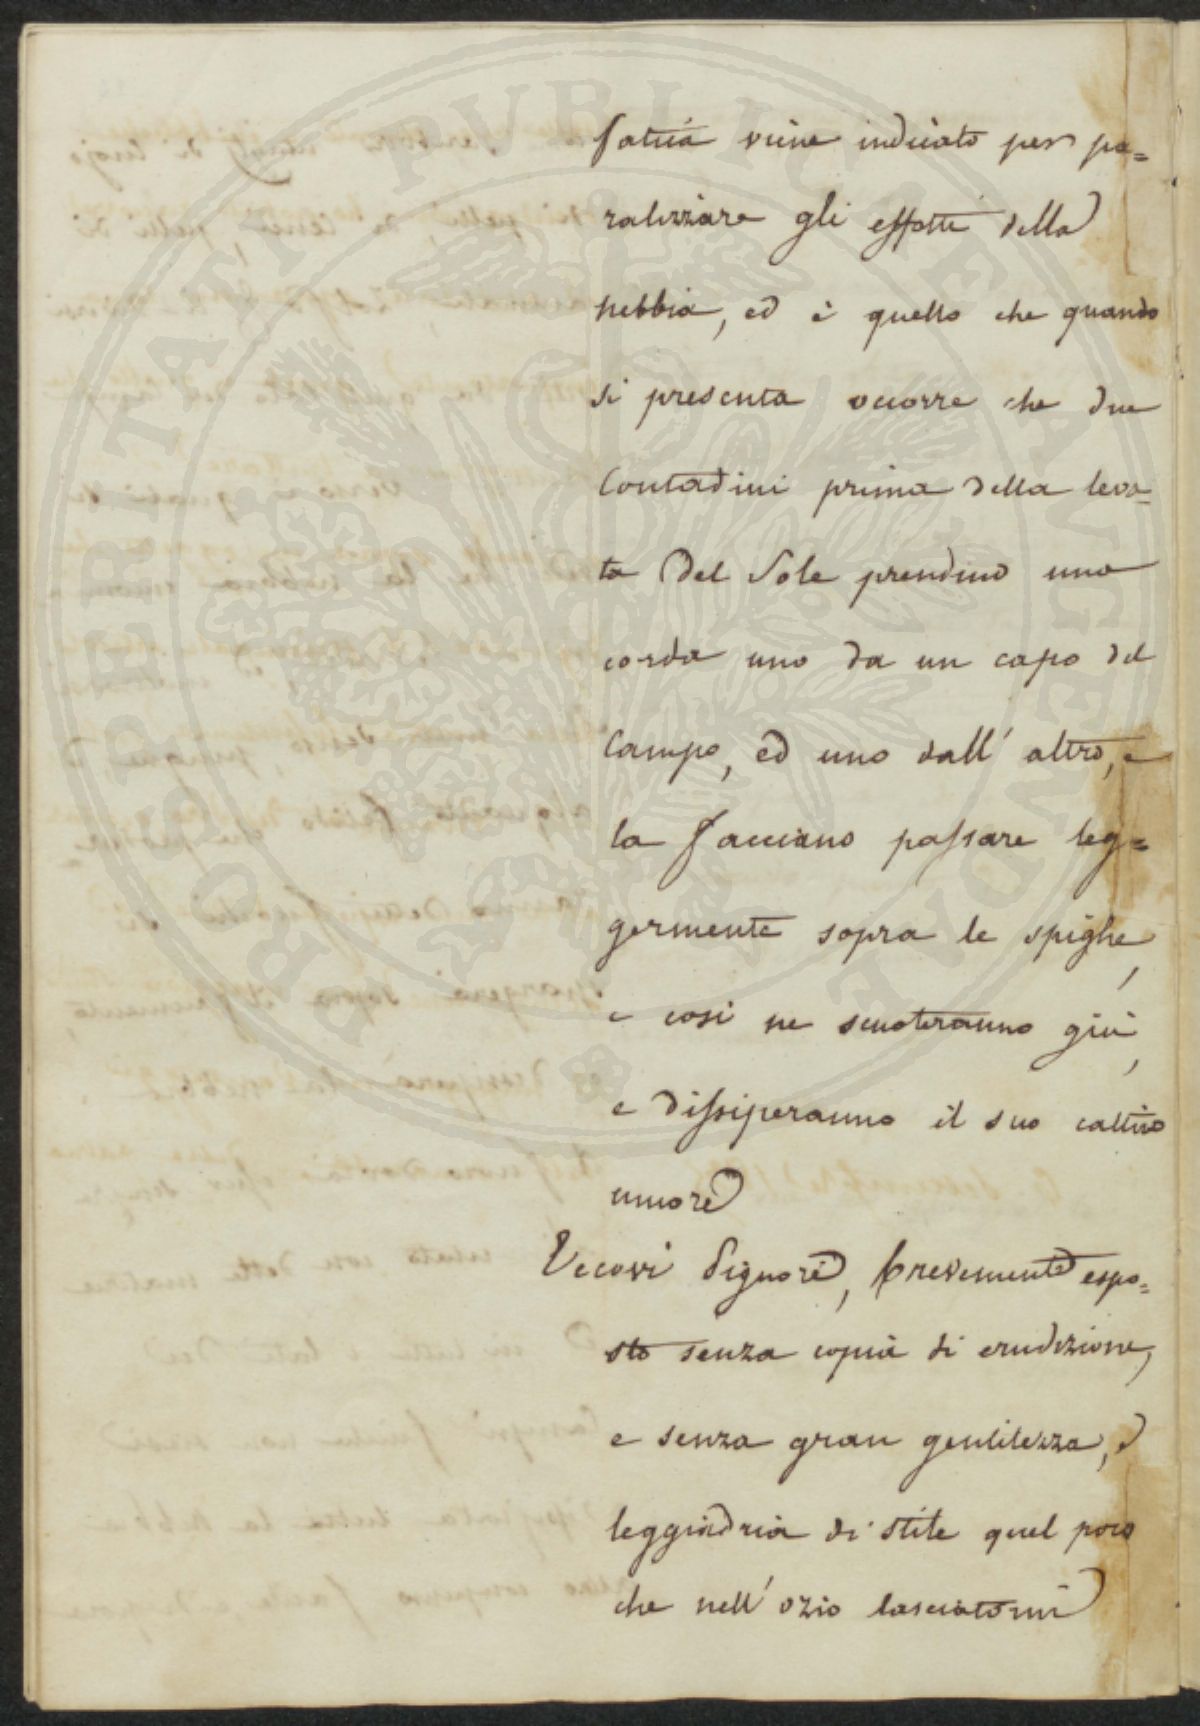 fatica viene indicato per pa=
ralizzare gli effetti della
nebbia, ed è quello che quando
si presenta occorre che due
Contadini prima della leva=
ta del Sole prendino una
corda uno da un capo del
Campo, ed uno dall' altro, e
la facciano passare leg=
germente sopra le spighe,
e così ne scuoteranno giù,
e dissiperanno il suo cattivo
umore
Eccovi Signori, brevemente espo=
sto senza copia di erudizione,
e senza gran gentilezza, e
leggiadria di stile quel poco
che nell' ozio lasciatomi
PROSPERITATI PVBLICAE AVGENDAE